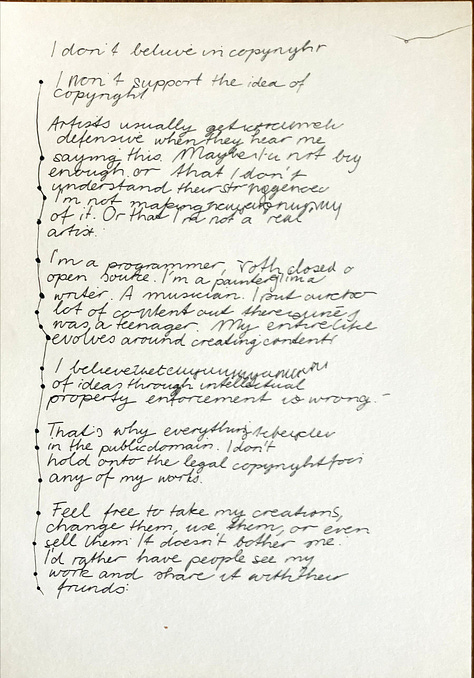 I don't believe in copyright
I don't support the idea of
copyright
Artists usually get
defensive when they hear me
saying this. Maybe I'm not big
enough. or that I don't
understand their
I'm not making
of it. Or that I'm not a real
artist.
I'm a programmer, both closed &
open source. I'm a painter, I'm a
writer. A musician. I put out
lot of content out there
was a teenager. My entire life
evolves around creating content
I believe that
of ideas through intellectual
property enforcement is wrong.
That's why everything
in the public domain. I don't
hold onto the legal copyright for
any of my works.
Feel free to take my creations,
change them, use them, or even
sell them. It doesn't bother me.
I'd rather have people see my
work and share it with their
friends.